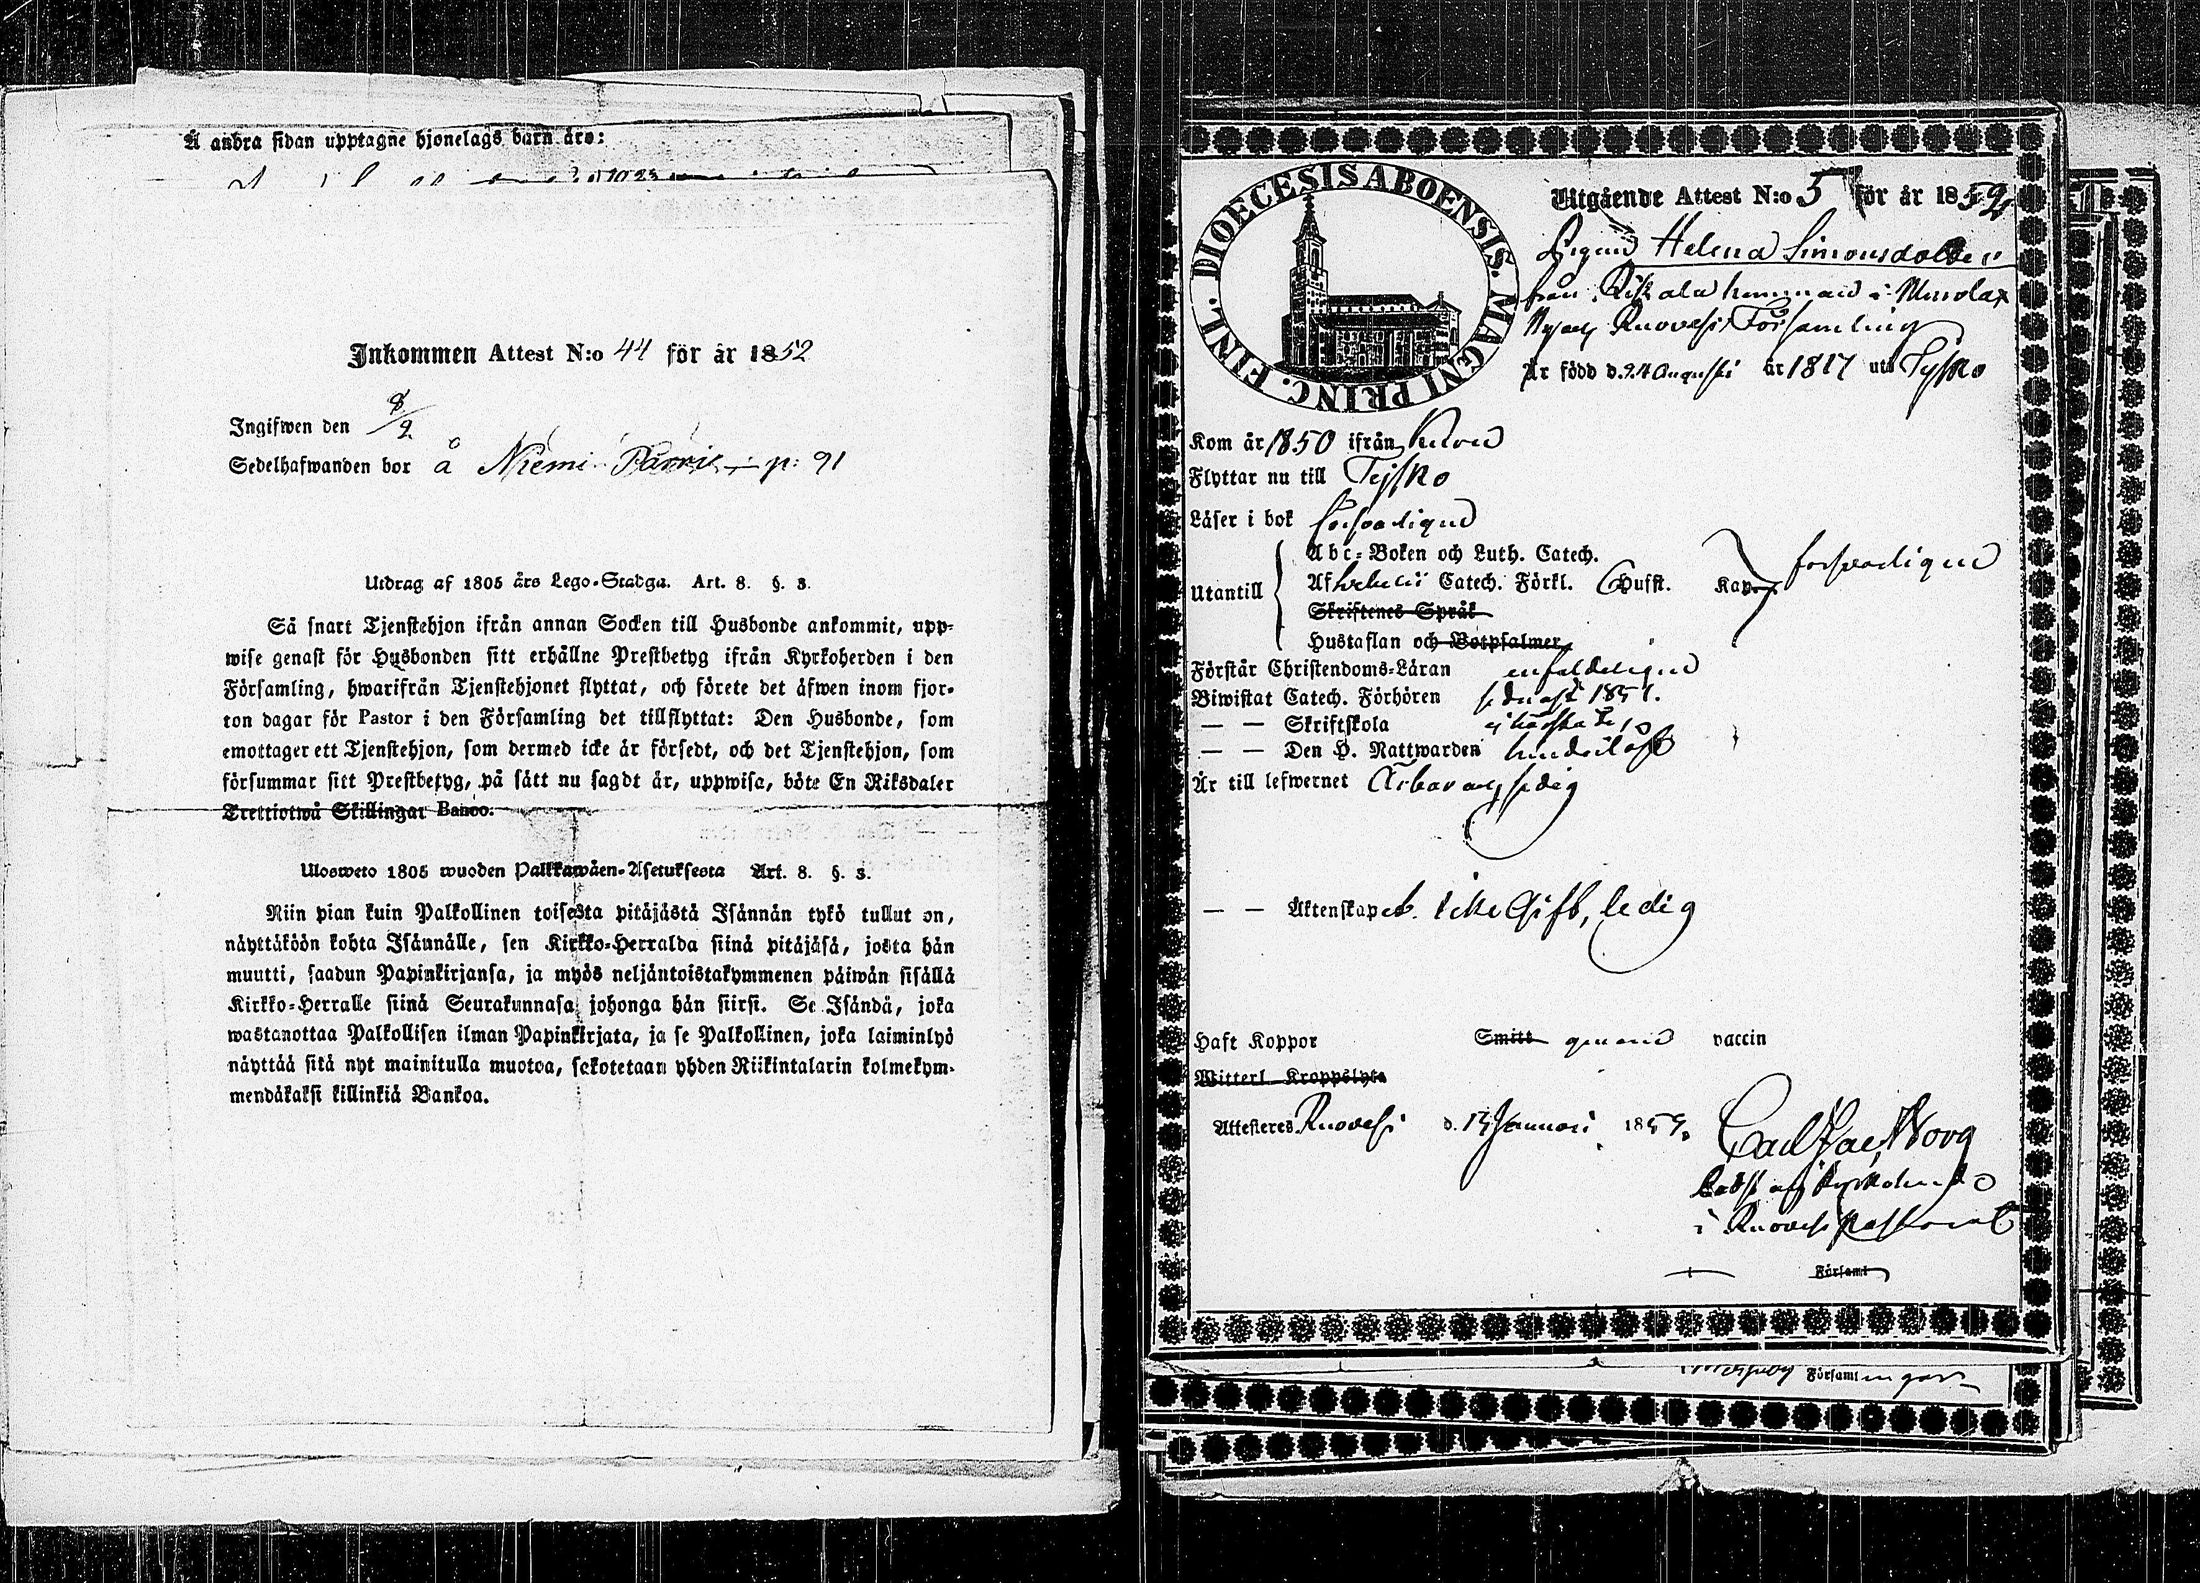 Å andra sidan upptagne hjonelags barn äro:
Inkommen Attest N:o 44 för år 1852
Ingifwen den 8/9
Sedelhafwanden bor å Niemi Pärris p: 91
Utdrag af 1805 års Lego-Stadga. Art. 8. §. 3.
Så snart Tjenstehjon ifrån annan Socken till Husbonde ankommit, upp-
wise genast för Husbonden sitt erhållne Prestbetyg ifrån Kyrkoherden i den
Församling, hwarifrån Tjenstehjonet flyttat, och förete det äfwen inom fjor-
ton dagar för Pastor i den Församling det tillflyttat: Den Husbonde, som
emottager ett Tjenstehjon, som dermed icke är försedt, och det Tjenstehjon, som
försummar sitt Prestbetyg, på sätt nu sagdt är, uppwisa, böte En Riksdaler
Trettiotwå Skillingar Banco.
Ulosweto 1805 wuoden Palkkawäen-Asetuksesta Art. 8. §. 3.
Niin pian kuin Palkollinen toisesta pitäjästä Isännän tykö tullut on,
näyttäköön kohta Isännälle, sen Kirkko-Herralda siinä pitäjäsä, josta hän
muutti, saadun Papinkirjansa, ja myös neljäntoistakymmenen päiwän sisällä
Kirkko-Herralle siinä Seurakunnasa johonga hän siirsi. Se Isändä, joka
wastanottaa Palkollisen ilman Papinkirjata, ja se Palkollinen, joka laiminlyö
näyttää sitä nyt mainitulla muotoa, sakotetaan yhden Riikintalarin kolmekym-
mendäkaksi killinkiä Bankoa.
DIOECESIS ABOENSIS. MAGNI PRINC. FINL.
Utgående Attest N:o 5 för år 1852
Pigan Helena Simonsdotter
från hemman i Murola
Ruovesi Församling
Är född d. 24 Augusti år 1817 uti Tejsko
Kom år 1850 ifrån
Flyttar nu till Tejsko
Läser i bok försvarligen
Utantill
Abc-Boken och Luth. Catech.
Af Catech. Förkl. Hufst. Kap. försvarligen
Skriftenes Språk
Hustaflan och Botpsalmer
Förstår Christendoms-Läran enfaldeligen
Biwistat Catech. Förhören sednast 1851.
— — Skriftskola
— — Den H. Nattwarden
Är till lefwernet Ärbar och sedig
— — Äktenskapet. icke Gift, ledig
Haft Koppor Smitt genom vaccin
Witterl. Kroppslyte
Attesteras Ruovesi d. Januari 185
Carl
i Ruovesi Pastorat
Församl
Församlingar